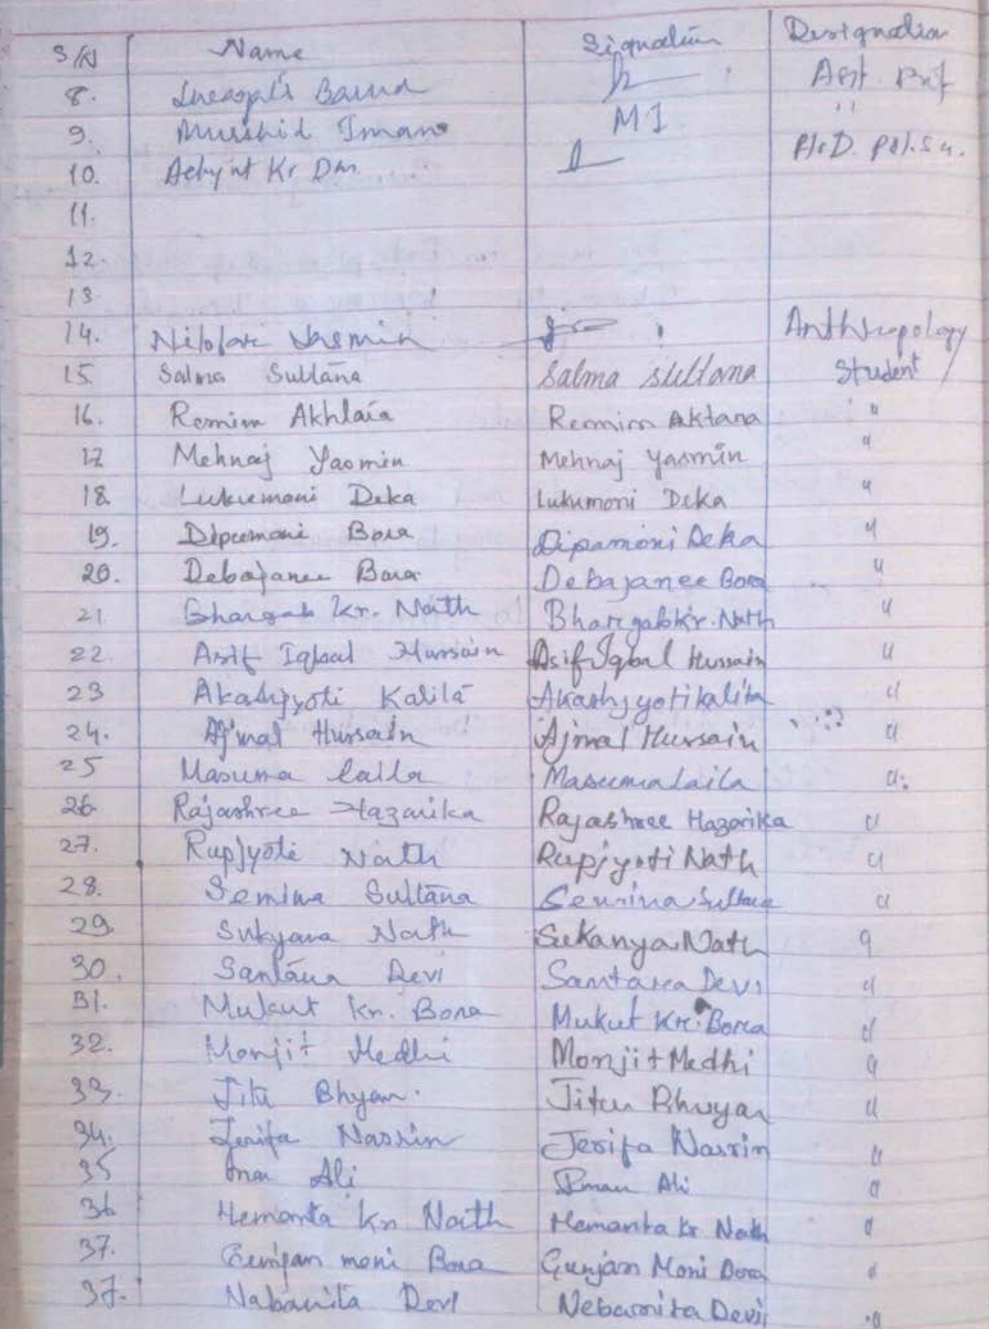 S/N Name Signature Designation
8. Baruà Asst. Prof
9. Murshid Imam M I "
10. Achyut Kr Das. Pol. Sc.
11.
12.
13
14. Nilofar Yasmin Anthropology
15 Salma Sultana Salma Sultana Student
16. Remim Akhtara Remim Aktara "
17 Mehnaj Yasmin Mehnaj Yasmin "
18. Lukumoni Deka Lukumoni Deka "
19. Dipumoni Bora Dipamoni Deka "
20. Debajanee Bora Debajanee Bora "
21. Bhargab Kr. Nath Bhargab Kr. Nath "
22. Asif Iqbal Hussain Asif Iqbal Hussain "
23 Akashjyoti Kalita Akashjyoti Kalita "
24. Ajmal Hussain Ajmal Hussain "
25 Masuma Laila Masuma Laila "
26 Rajashree Hazarika Rajashree Hazarika "
27. Rupjyoti Nath Rupjyoti Nath "
28. Semina Sultana Semina Sultana "
29. Nath Sukanya Nath "
30. Santana Devi Santana Devi "
31. Mukut Kr. Bora Mukut Kr. Bora "
32. Monjit Medhi Monjit Medhi "
33. Jitu Bhyan. Jitu Bhuyan "
34. Jerifa Nasrin Jerifa Nasrin "
35 Ali Iman Ali "
36 Hemanta Kr Nath Hemanta Kr Nath "
37. Gunjan moni Bora Gunjan Moni Bora "
37. Nabanita Devi Nebarnita Devi "